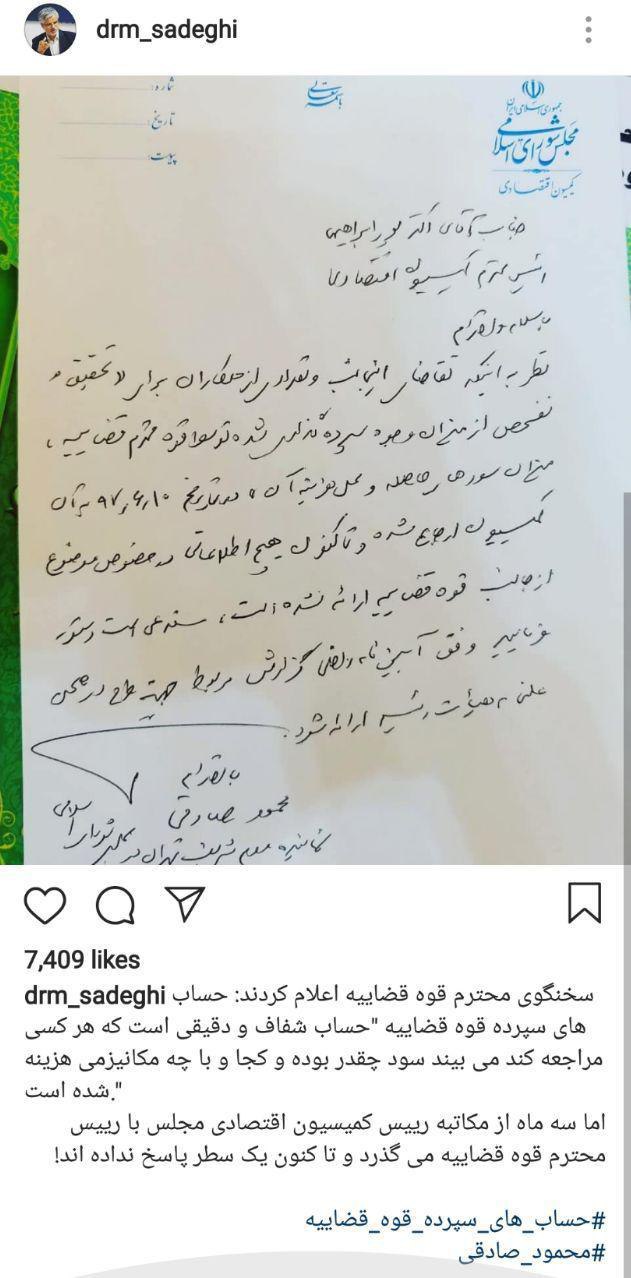 drm_sadeghi
شماره:
تاریخ:
پیوست:
باسمه تعالی
جمهوری اسلامی ایران
مجلس شورای اسلامی
کمیسیون اقتصادی
جناب آقای دکتر پورابراهیمی
رئیس محترم کمیسیون اقتصادی
با سلام و احترام
نظر به اینکه تقاضای اینجانب و تعدادی از همکاران برای «تحقیق و
تفحص از میزان وجوه سپرده گذاری شده توسط قوه محترم قضاییه،
میزان سودهای حاصله و محل هزینه آن» در تاریخ ۹۷,۶,۱۰ به آن
کمیسیون ارجاع شده و تاکنون هیچ اطلاعاتی در خصوص موضوع
از جانب قوه قضاییه ارائه نشده است، مستدعی است دستور
فرمایید وفق آیین نامه داخلی گزارش مربوط جهت طرح در صحن
علنی به هیأت رئیسه ارائه شود.
با احترام
محمود صادقی
نماینده مردم شریف تهران در مجلس شورای اسلامی
7,409 likes
drm_sadeghi سخنگوی محترم قوه قضاییه اعلام کردند: حساب
های سپرده قوه قضاییه "حساب شفاف و دقیقی است که هر کسی
مراجعه کند می بیند سود چقدر بوده و کجا و با چه مکانیزمی هزینه
شده است."
اما سه ماه از مکاتبه رییس کمیسیون اقتصادی مجلس با رییس
محترم قوه قضاییه می گذرد و تا کنون یک سطر پاسخ نداده اند!
#حساب_های_سپرده_قوه_قضاییه
#محمود_صادقی